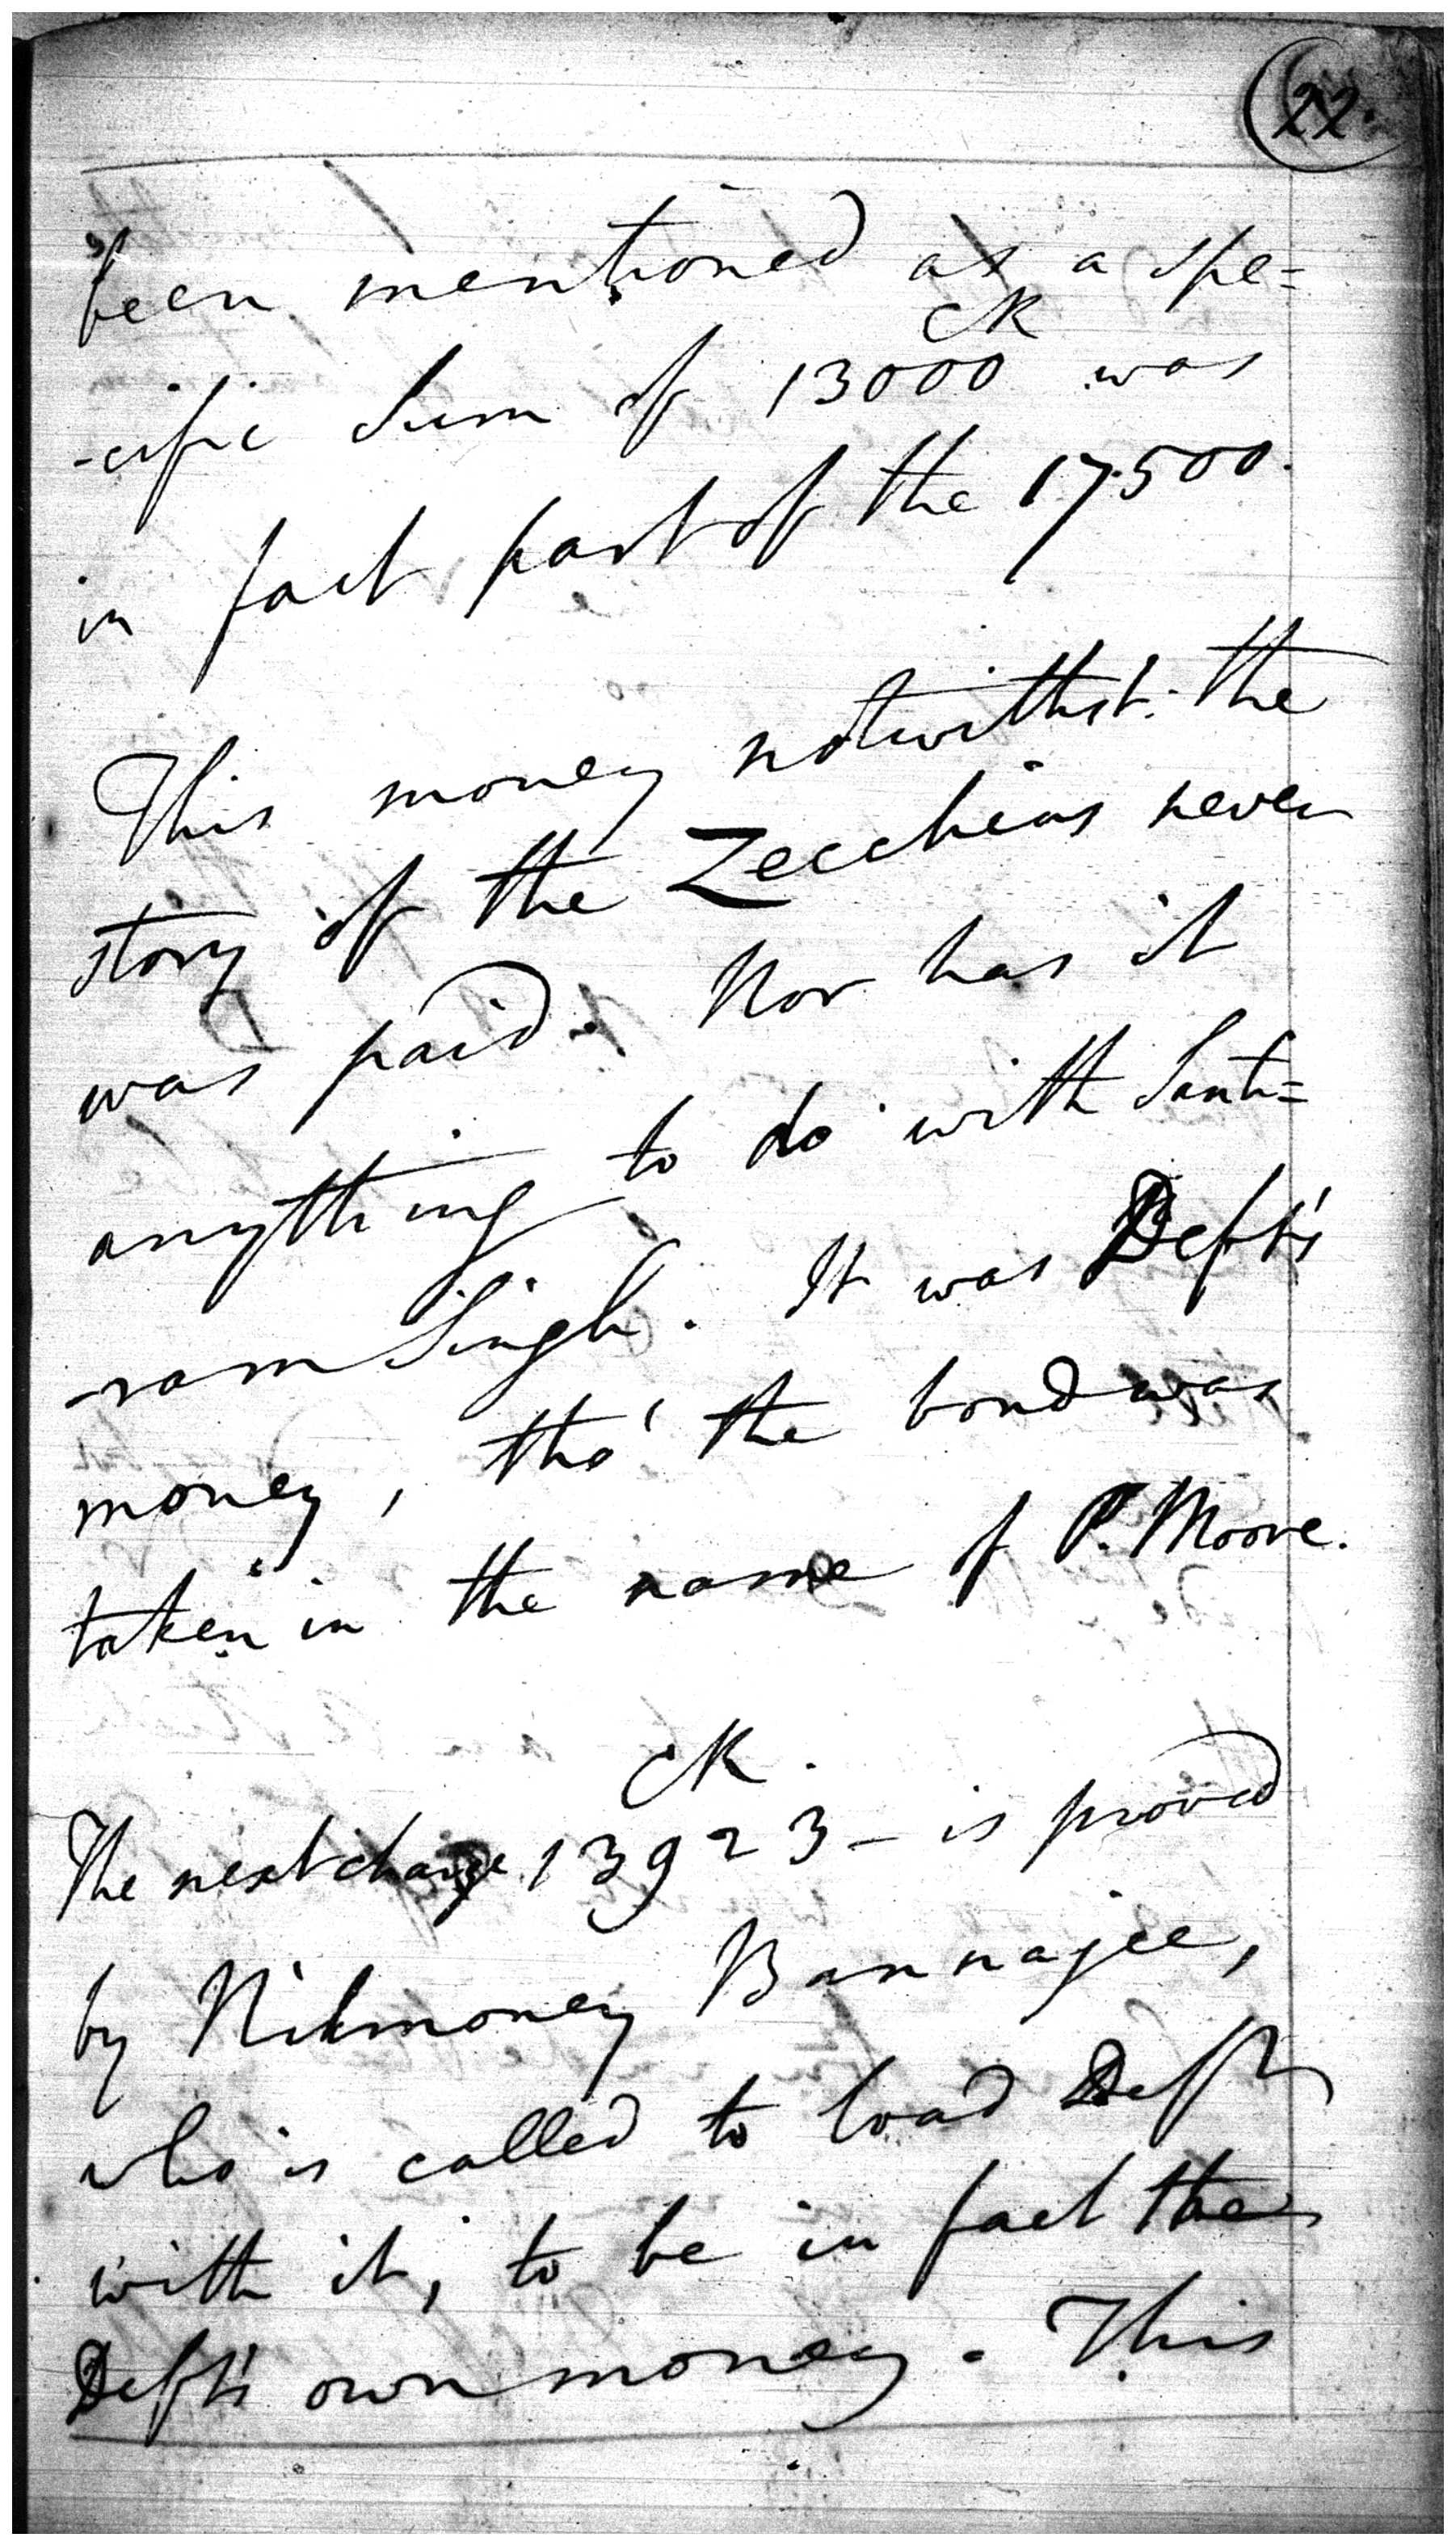 22.
been mentioned as a spe=
CR
-cific Sum of 13000 was
in fact part of the 17.500.
This money notwithst: the
story of the Zecchins never
was paid. Nor has it
anything to do with Sant=
-ram Singh. It was Deft's
money, tho' the bond was
taken in the name of P. Moore.
CR.
The next charge 13923 - is proved
by Nilmoney Bannajee,
who is called to load Deft
with it, to be in fact the
Deft's own money. This